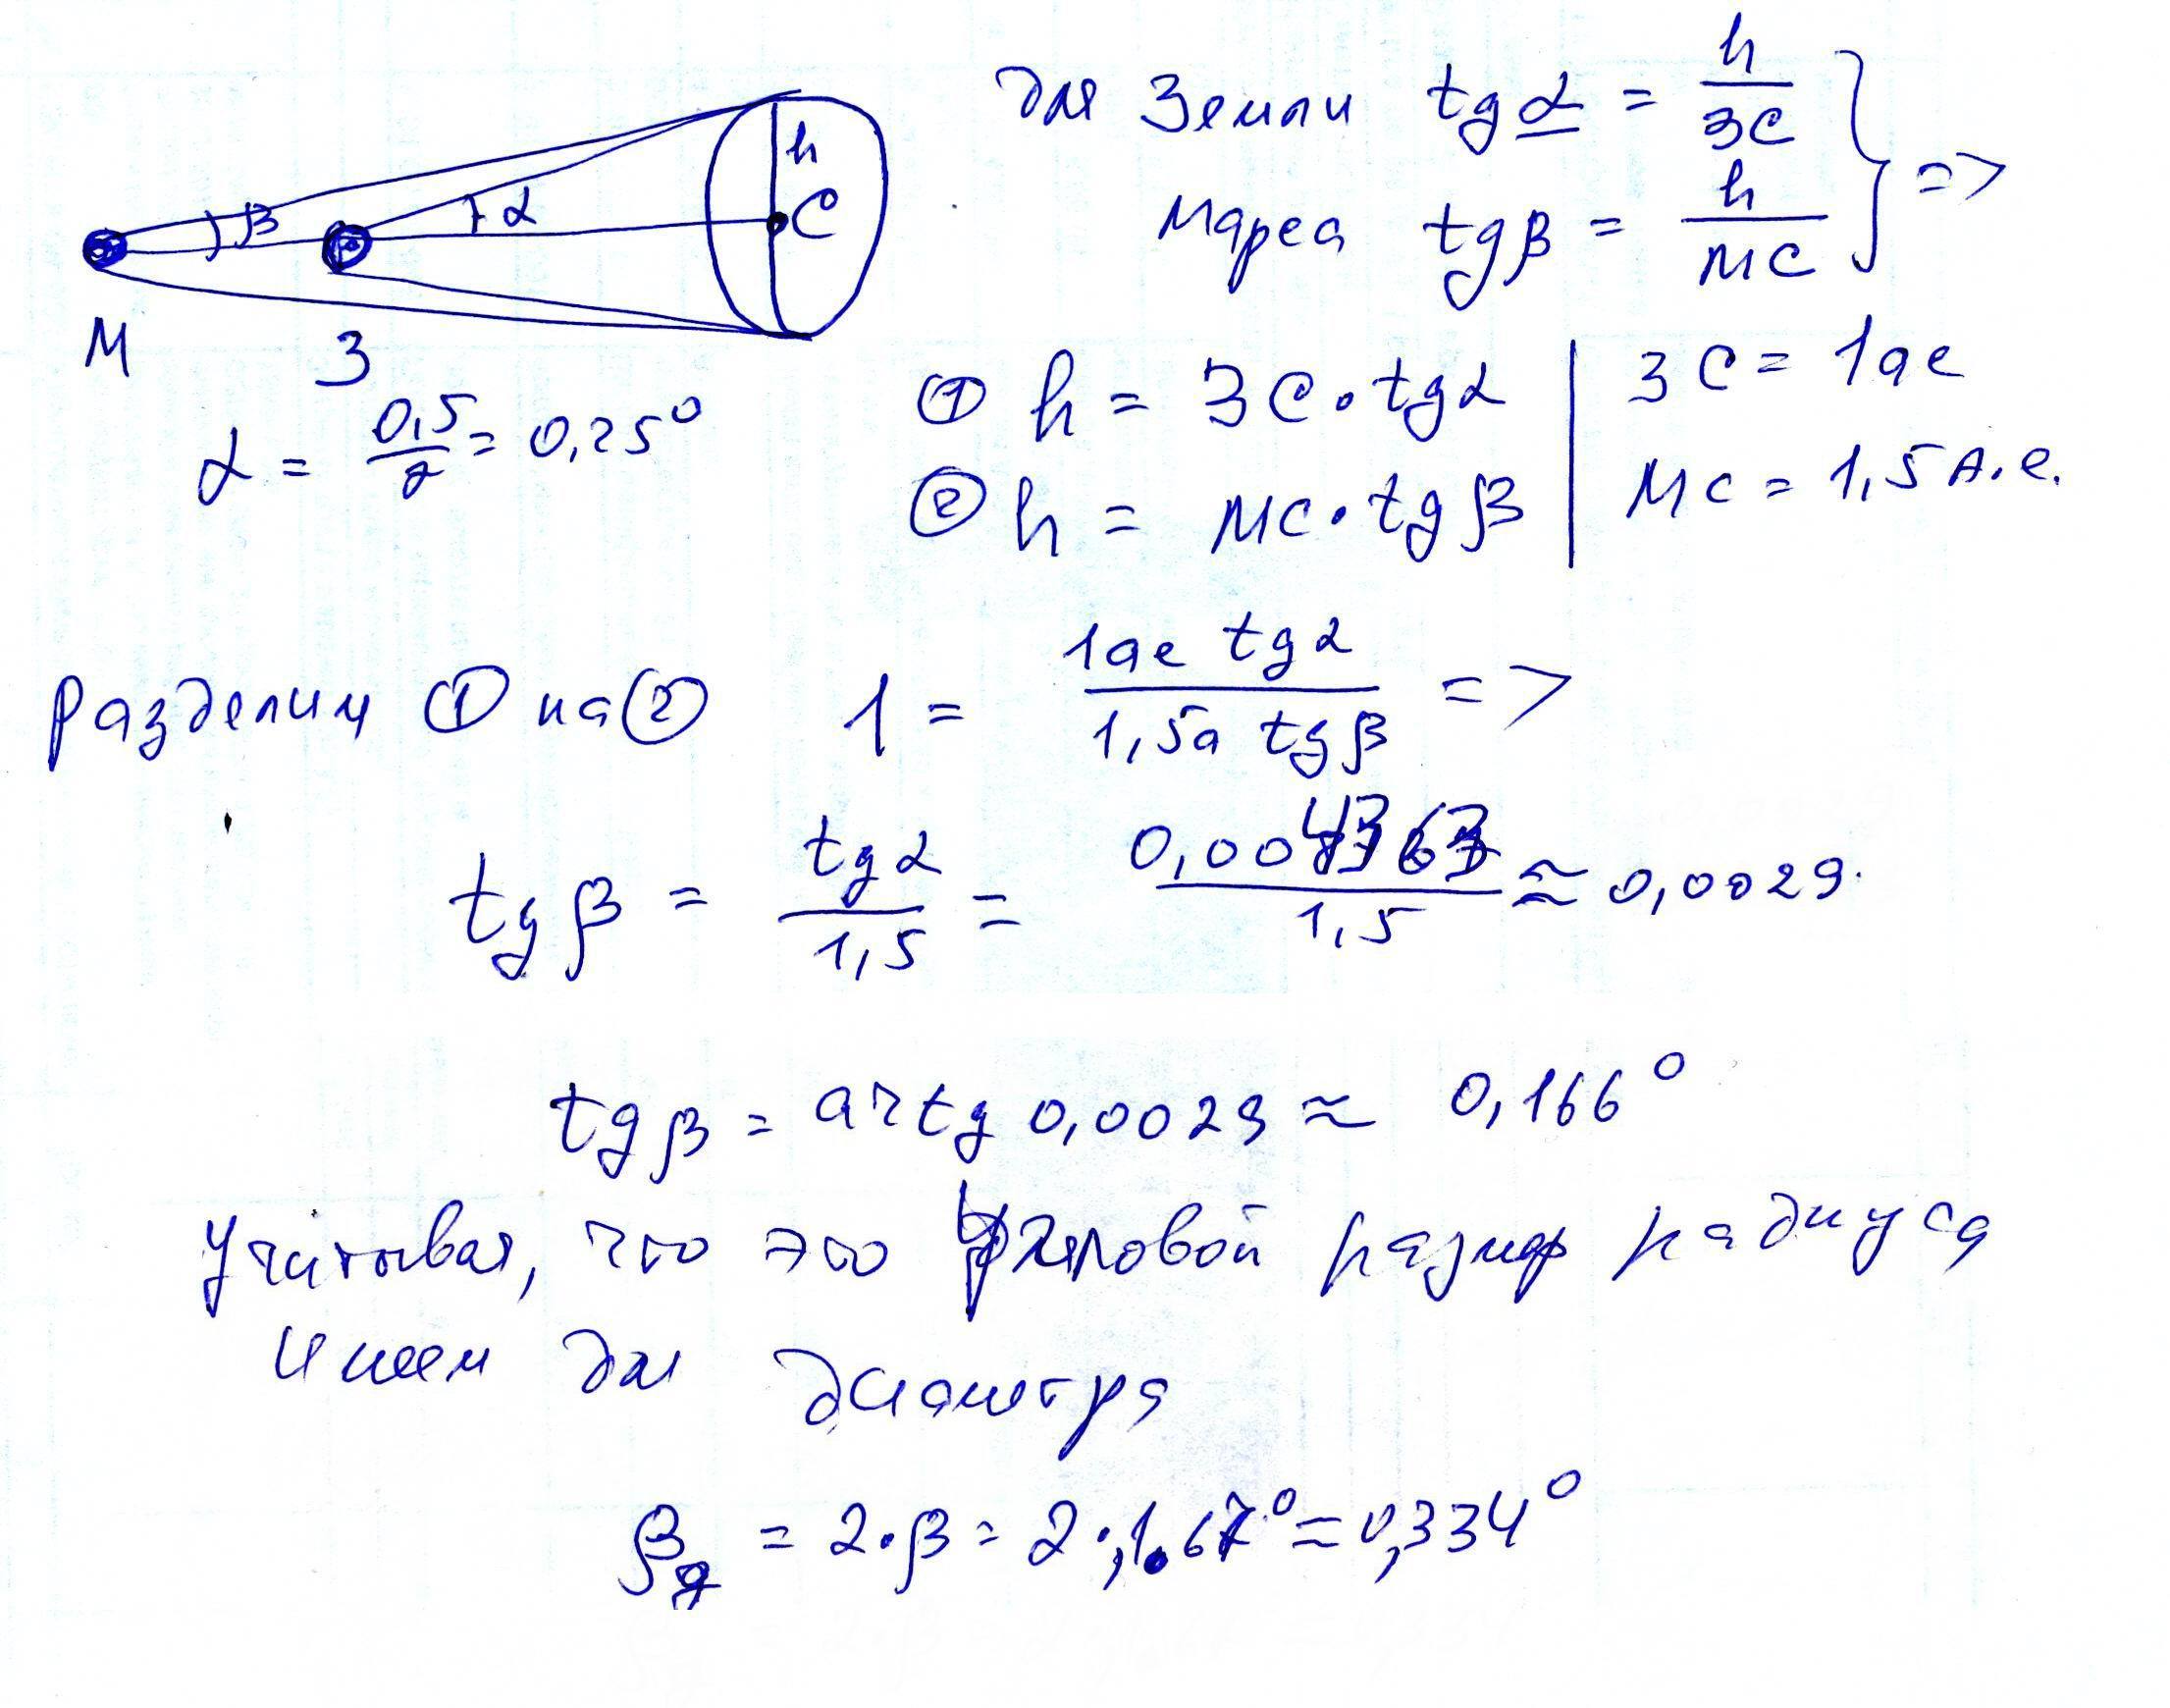 для Земли tg α = h / ЗС
Марса tg β = h / МС } =>
h
β α С
М З
α = 0,5 / 2 = 0,25°
① h = ЗС · tg α | ЗС = 1 ае
② h = МС · tg β | МС = 1,5 А.е.
Разделим ① на ② 1 = 1ае tg α / 1,5а tg β =>
tg β = tg α / 1,5 = 0,004363 / 1,5 ≈ 0,0029.
tg β = arctg 0,0029 ≈ 0,166°
Учитывая, что это угловой размер радиуса
имеем для диаметра
β д = 2 · β = 2 · ,1 67° ≈ 0,334°